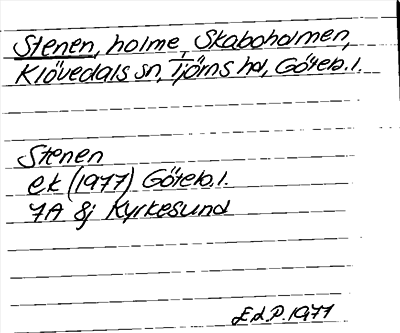 Stenen, holme, Skaboholmen,
Klövedals sn, Tjörns hd, Göteb. l.
Stenen
ek (1977) Göteb. l.
7A 8j Kyrkesund
E d. P. 1977